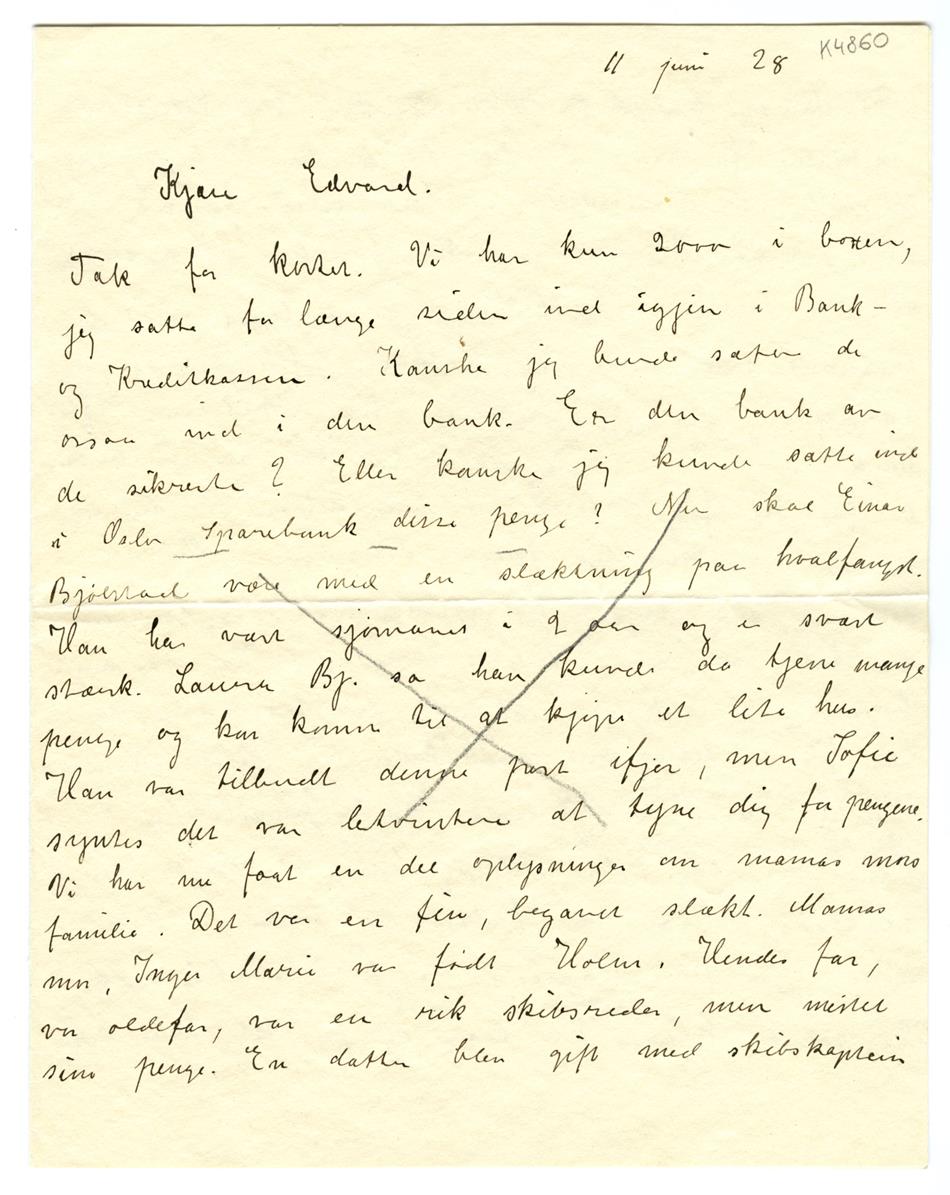 K4860
11 juni 28
Kjære Edvard.
Tak for kortet. Vi har kun 2000 i boxen,
jeg satte for længe siden ind igjen i Bank-
og Kreditkassen. Kanske jeg burde sætte de
ossaa ind i den bank. Er den bank av
de sikreste? Eller kanske jeg kunde sætte ind
i Oslo Sparebank disse penge? Nu skal Einar
Bjølstad være med en slæktning paa hvalfangst.
Han har vært sjømand i 2 aar og er svært
stærk. Laura Bj. sa han kunde da tjene mange
penge og kan komme til at kjøpe et lite hus.
Han var tilbudt denne post ifjor, men Sofie
syntes det var letvintere at tyne dig for pengene.
Vi har nu faat en del oplysninger om mamas mors
familie. Det var en fin, begavet slækt. Mamas
mor, Inger Marie var født Holm. Hendes far,
vor oldefar, var en rik skibsreder, men mistet
sine penge. En datter blev gift med skibskaptein